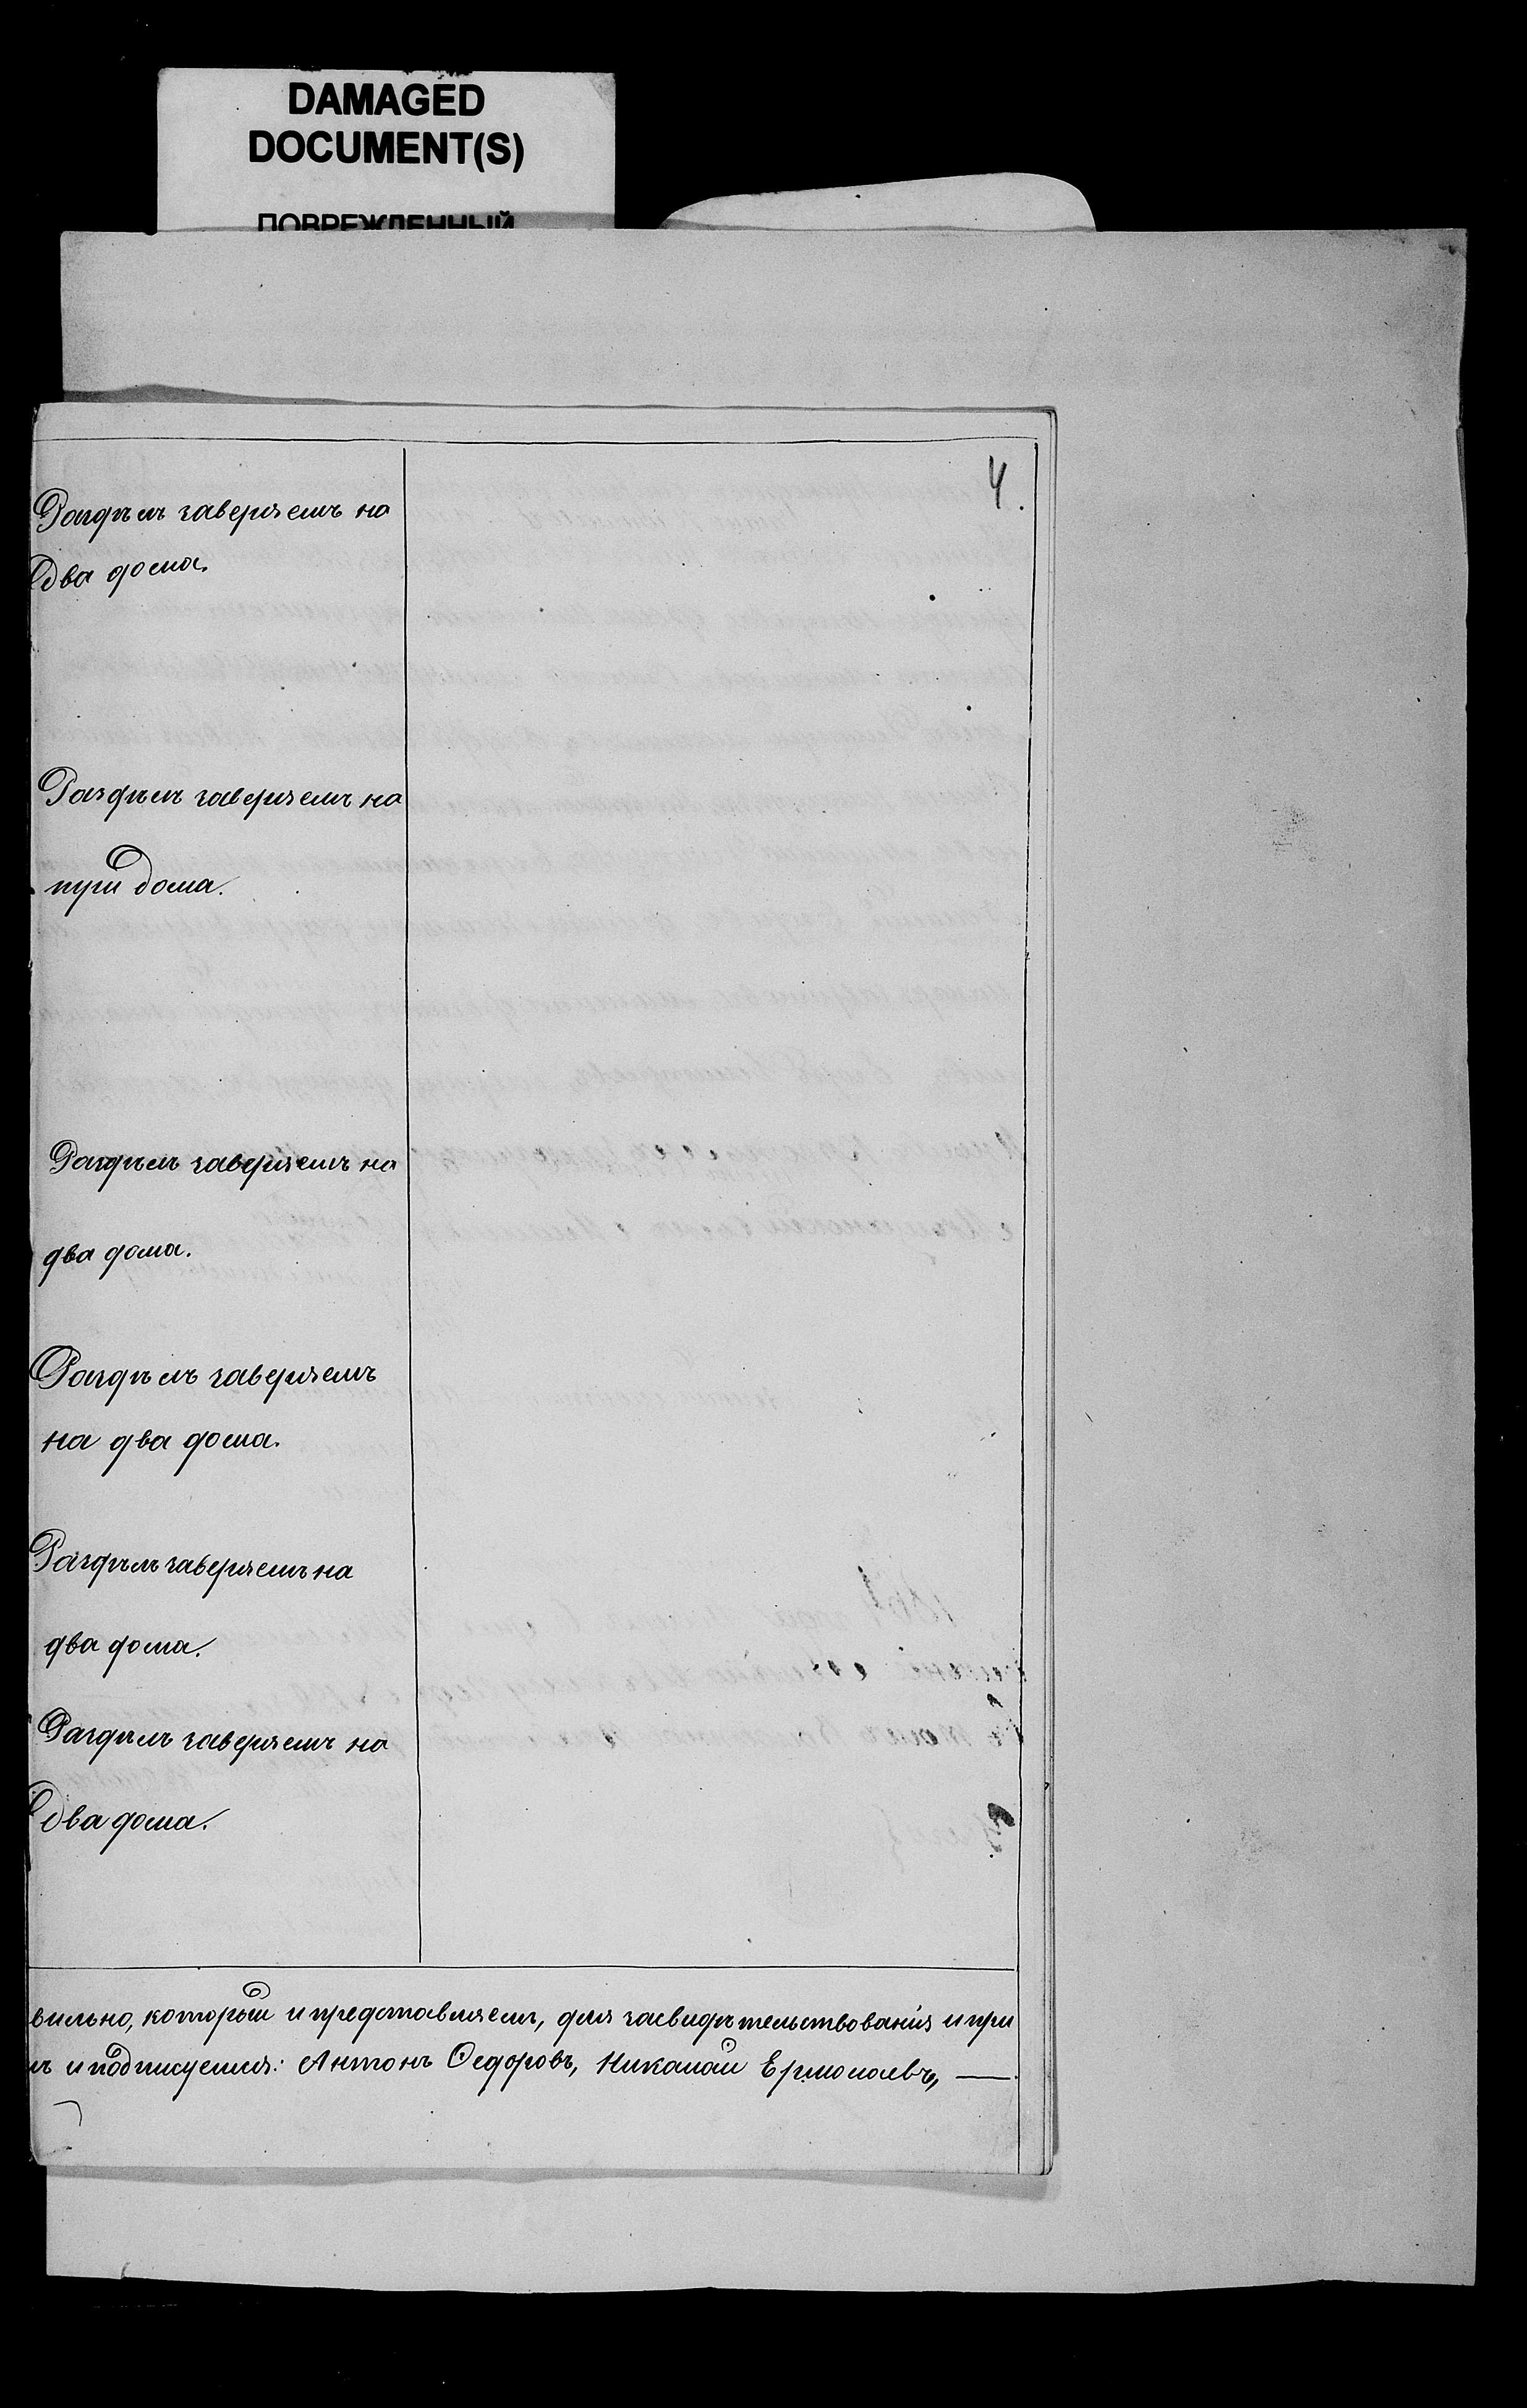 DAMAGED
DOCUMENT(S)
ПОВРЕЖДЕННЫЙ
4.
Раздѣлъ заверяемъ на
два дома.
Раздѣлъ заверяемъ на
три дома.
Раздѣлъ заверяемъ на
два дома.
Раздѣлъ заверяемъ
на два дома.
Раздѣлъ заверяемъ на
два дома.
Раздѣлъ заверяемъ на
два дома.
вильно, который и представляемъ, для засвидѣтельствованія и при
мъ и подписуемся: Антонъ Ѳедоровъ, Николай Ермолаевъ, —